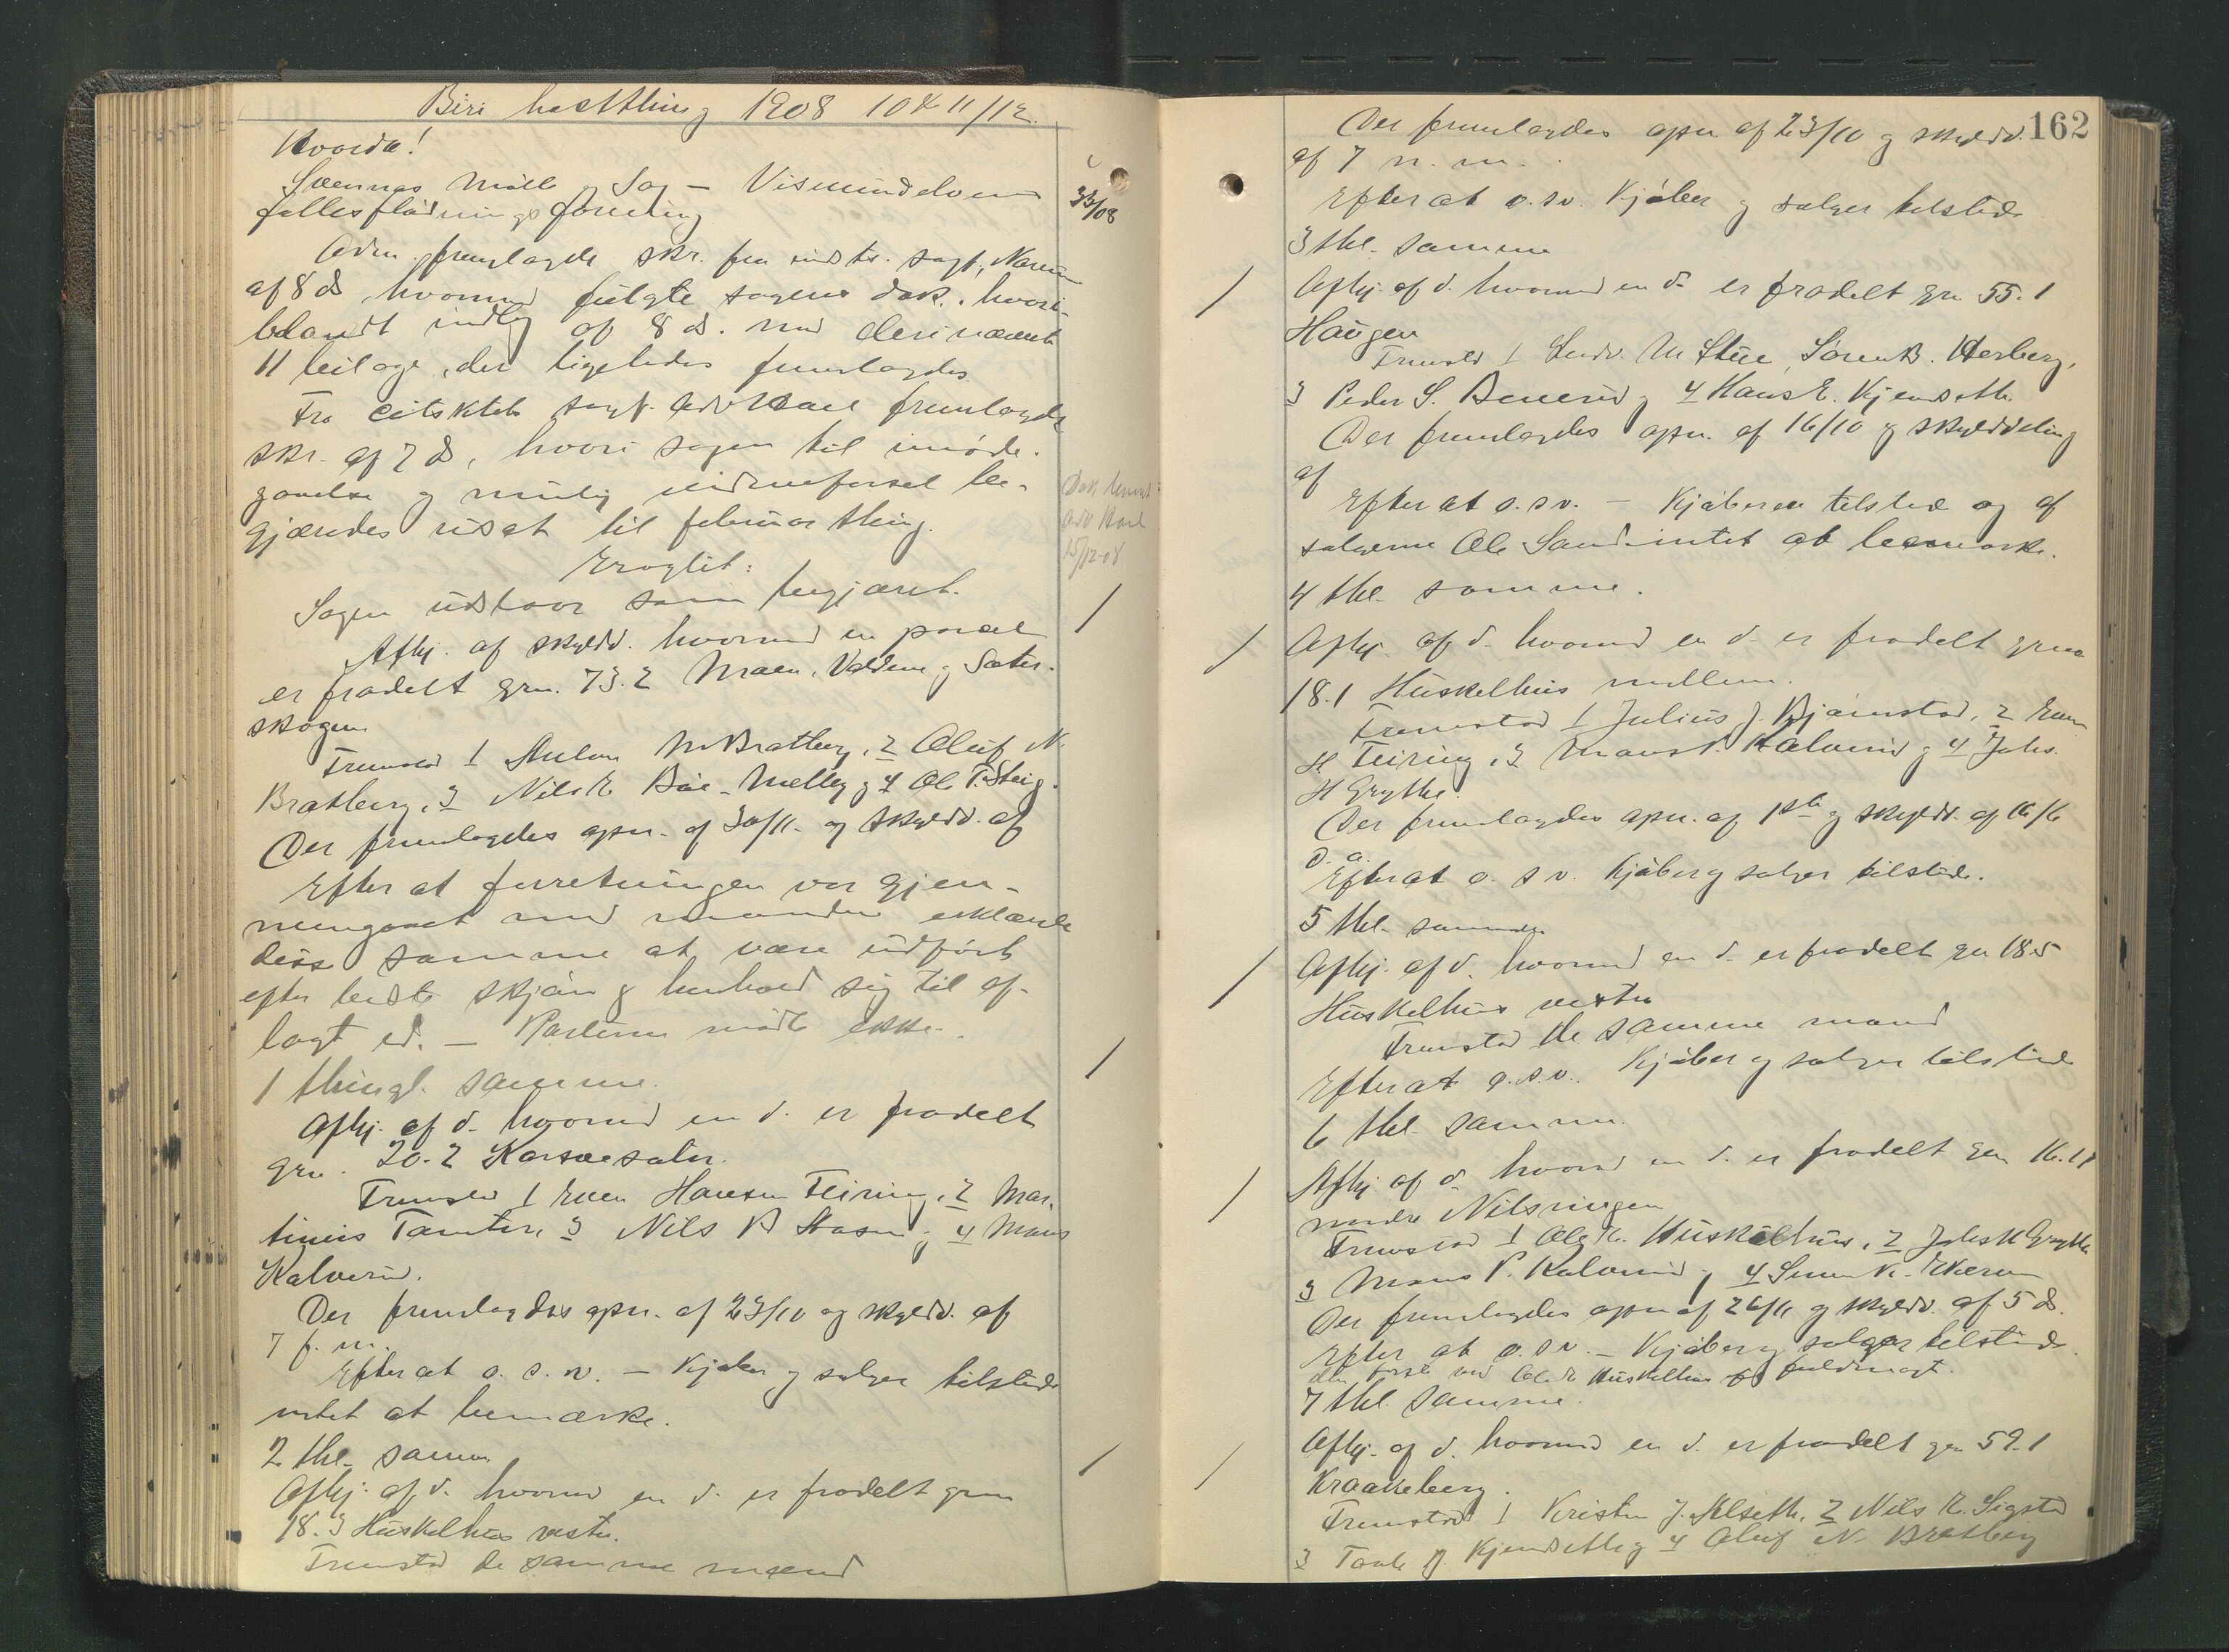 Biri høstthing 1908 10 & 11/12.
Hvorda!
Svennes Mølle & Sag – Vismundelvens
fællesflødningsforening
33/08
Adm. fremlagde skr. fra indst. sagf.
af 8 ds hvormed fulgte sagens dok. hvori-
blandt indlæg af 8 ds. med deri nævnte
11 beilage, der ligeledes fremlagdes
Fra citsktets sagf. fremlagdes
skr. af 7 ds, hvori sagen til imøde-
gaaelse og mulig vidneførsel be-
gjæredes udsat til februarthing.
Eragtet:
Sagen udstaar som begjæret.
Dok
15/12 08
Afhj. af skyldd. hvorved en parcel
er fradelt grn. 73.2 Moen, Valdem og Sæter-
skogen
Fremstod 1 Anton M Bratberg, 2 Oluf N.
Bratberg, 3 Nils E og 4 Ole T. Steig.
Der fremlagdes opn. af 30/11. og skyldd. af
Efter at forretningen var gjen-
nemgaaet med mændene erklærede
disse samme at være udført
efter bedste skjøn & henhold sig til af-
lagt ed. – Parterne mødte ikke.
1 thingl. samme.
Afhj. af d. hvorved en d. er fradelt
grn. 20.2
Fremstod 1 Even Hansen Teiring, 2 Mar-
tinius 3 Nils og 4 Mons
Kalverud.
Der fremlagdes opn. af 23/10 og skyldd. af
7 f. m.
Efter at o. s. v. – Kjøber og sælger tilstede
intet at bemærke.
2 thl. samme
Afhj. af d. hvorved en d. er fradelt grn
18.3 Huskelhus vestre.
Fremstod de samme mænd
162
Der fremlagdes opn. af 23/10 og skyldd.
af 7 n. m.
Efter at o. s. v. Kjøber og sælger tilstede
3 thl. samme
Afhj. af d. hvorved en d. er fradelt grn. 55.1
Haugen
Fremstod 1 M Stue, Herberg,
3 Peder S. og 4 Hans E. Kjendseth.
Der fremlagdes opn. af 16/10 og skylddeling
af
Efter at o. s. v. – Kjøberen tilstede og af
sælgerne Ole Sand intet at bemærke.
4 thl. samme.
Afhj. af d. hvorved en d. er fradelt grn
18.1 Huskelhus mellem.
Fremstod 1 Julius J. Bjørnstad, 2 Even
H Teiring, 3 Mons P. Kalverud og 4 Johs.
H Grythe.
Der fremlagdes opn. af 1ste og skyldd. af 16/6
d. a.
Efter at o. s. v. Kjøber og sælger tilstede.
5 thl. samme
Afhj. af d. hvorved en d. er fradelt grn 18.5
Huskelhus vestre
Fremstod de samme mænd
Efter at o. s. v. Kjøber og sælger tilstede
6 thl. samme.
Afhj. af d. hvorved en d. er fradelt grn 16.11
nordre
Fremstod 1 Ole Huskelhus, 2 Johs H Grythe
3 Mons P. Kalverud og 4
Der fremlagdes opn af 26/11 og skyldd. af 5 ds.
Efter at o. s. v. – Kjøber og sælger tilstede.
den første ved Ole Huskelhus fuldmagt.
7 thl. samme.
Afhj. af d. hvorved en d. er fradelt grn 59.1
Kraakeberg.
Fremstod 1 Kristen J. Alseth, 2 Nils E. Sigstad
3 Kjendseth og 4 Oluf N. Bratberg